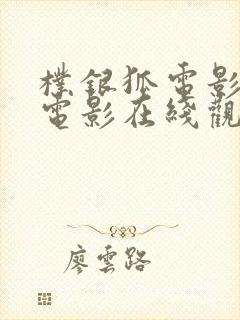 檏銀狐電影
電影在綫觀
廖雲路